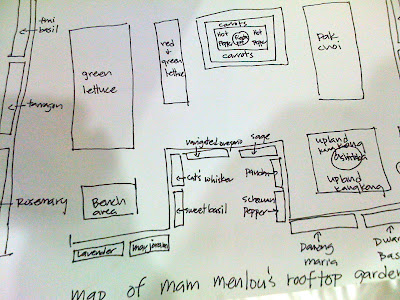 thai
basil
tarragon
Rosemary
green
lettuce
red
+
green
lettuce
carrots
Hot
Pepper
Hot
Pepper
carrots
Pak
choi
variegated oregano
sage
cat's whisker
sweet basil
Bench
area
Lavender
marjoram
Pandan
Schewan
Pepper
upland
kangkong
upland
kangkong
Damong
maria
Dwar
Bas
map of mam menlou's rooftop garden